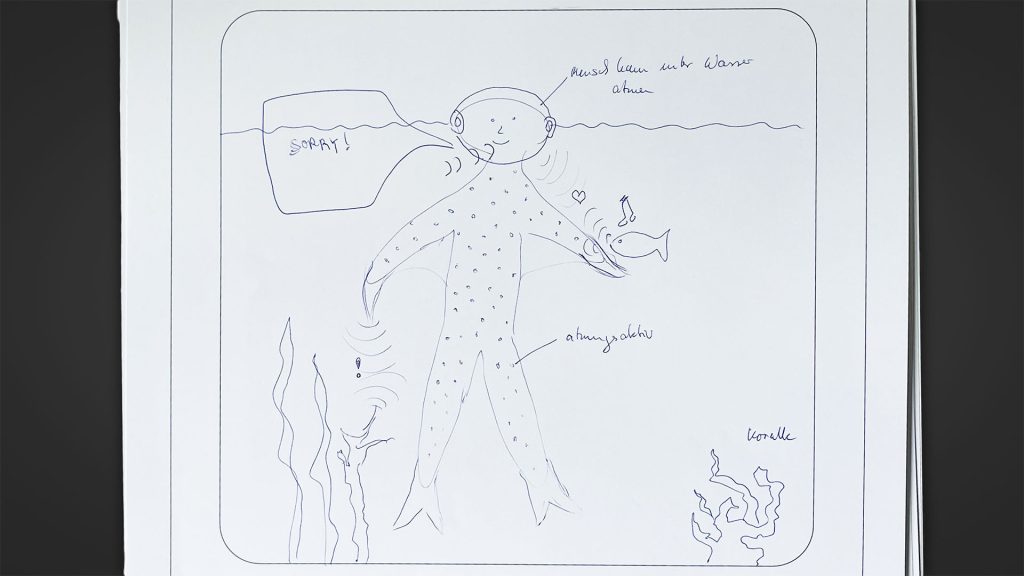 Mensch kann unter Wasser
atmen
SORRY!
atmungsaktiv
Koralle